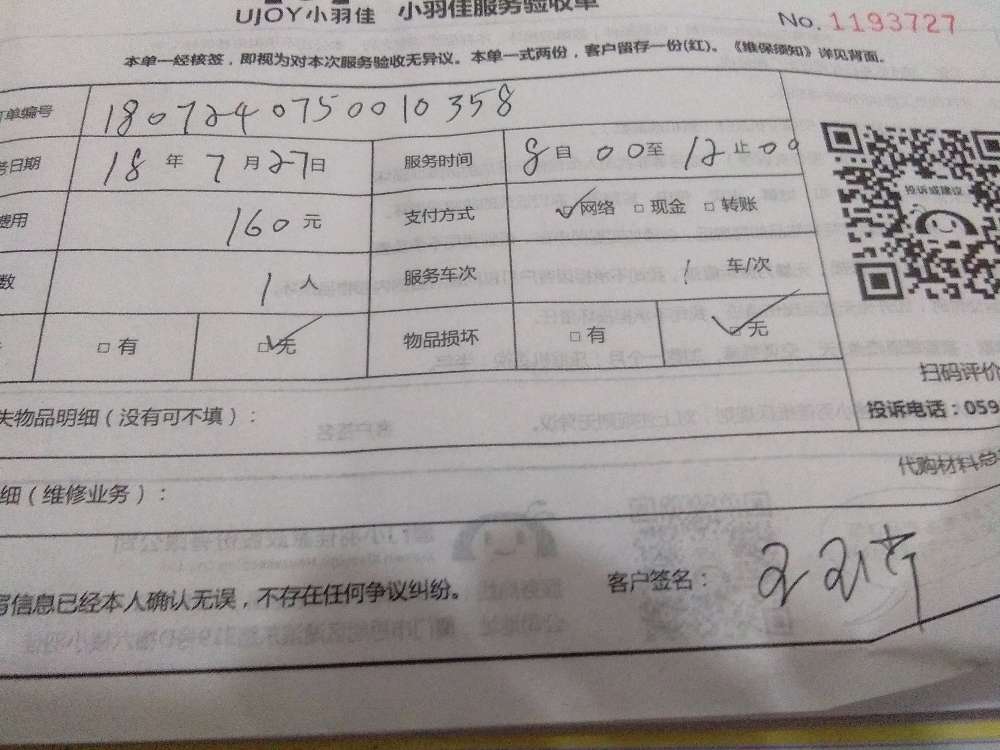 UJOY小羽佳 小羽佳服务验收单
No. 1193727
本单一经核签，即视为对本次服务验收无异议。本单一式两份，客户留存一份(红)。《维保须知》详见背面。
单编号 1807240750010358
日期 18 年 7 月 27 日 服务时间 8 自 00 至 12 止 00
费用 160 元 支付方式 ☑网络 □现金 □转账
数 1 人 服务车次 1 车/次
□有 ☑无 物品损坏 □有 ☑无
投诉或建议
扫码评价
投诉电话：059
失物品明细（没有可不填）：
代购材料总
细（维修业务）：
写信息已经本人确认无误，不存在任何争议纠纷。 客户签名：